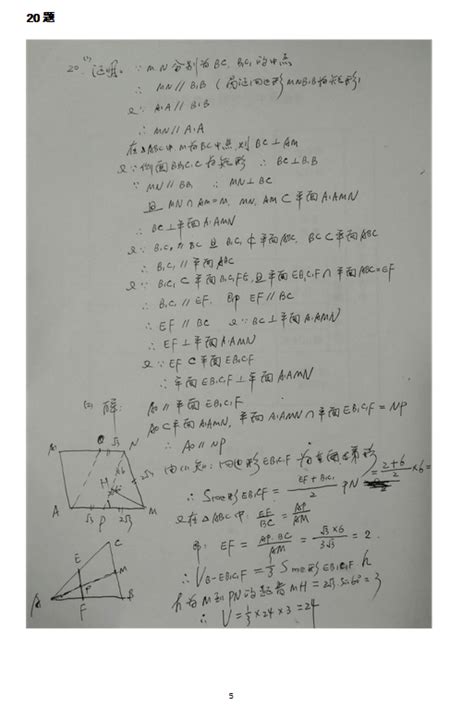 20题
20 (1) 证明: ∵ M, N 分别为 BC, B₁C₁ 的中点
∴ MN // B₁B
又∵ A₁A // B₁B
∴ MN // A₁A
在△ABC中 M为BC中点, 则 BC⊥AM
又∵ 侧面BB₁C₁C为矩形 ∴ BC⊥B₁B
∵ MN // BB₁ ∴ MN⊥BC
且 MN∩AM=M. MN, AM⊂平面A₁AMN
∴ BC⊥平面A₁AMN
又∵ B₁C₁ // BC 且 B₁C₁⊄平面ABC, BC⊂平面ABC
∴ B₁C₁ // 平面ABC
又∵ B₁C₁⊂平面EB₁C₁F, 且平面EB₁C₁F∩平面ABC=EF
∴ B₁C₁ // EF. 即 EF // BC
∴ EF // BC 又∵ BC⊥平面A₁AMN
∴ EF⊥平面A₁AMN
又∵ EF⊂平面EB₁C₁F
∴ 平面EB₁C₁F⊥平面A₁AMN
解: AO // 平面EB₁C₁F
AO⊂平面A₁AMN, 平面A₁AMN∩平面EB₁C₁F=NP
∴ AO // NP
O √3 N
H
A √3 P 2√3 M
∴ S EB₁C₁F = (EF+B₁C₁)/2 PN = (2+6)/2 ×6 =
又在△ABC中: EF/BC = AP/AM
EF = AP·BC/AM = √3×6/3√3 = 2.
∴ V_B-EB₁C₁F = 1/3 S EB₁C₁F · h
h为M到PN的距离 MH = 2√3 sin60° = 3
∴ V = 1/3 × 24 × 3 = 24
C
E M
P
F B
5